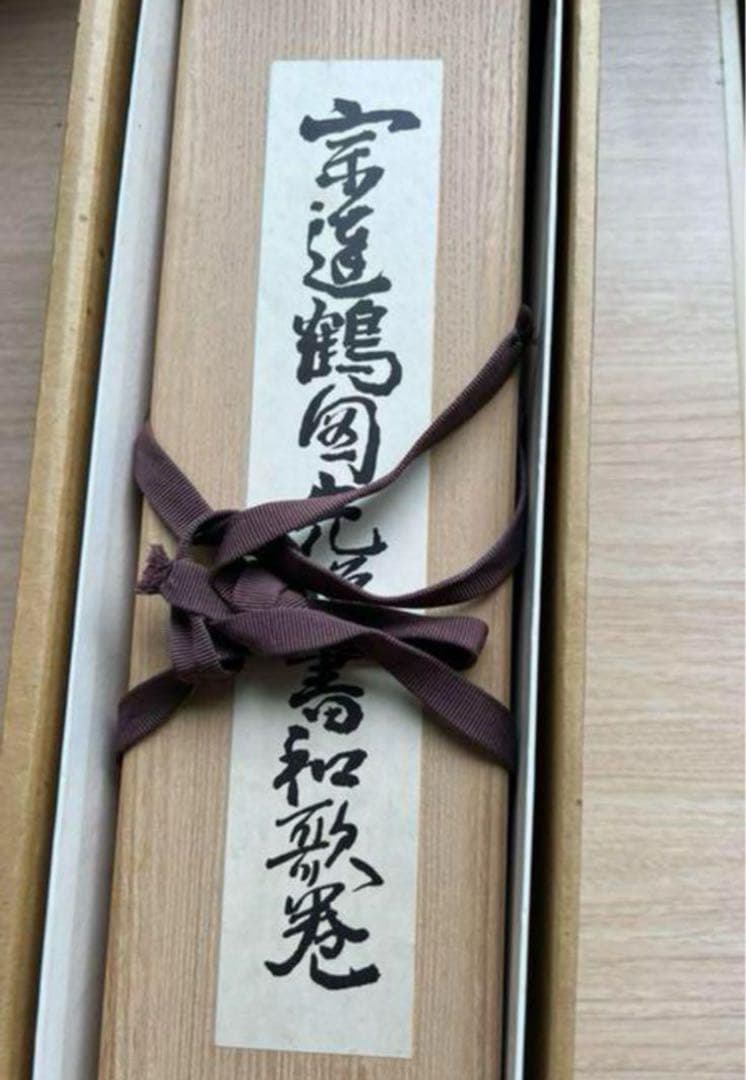 宗達鶴図光悦書和歌巻